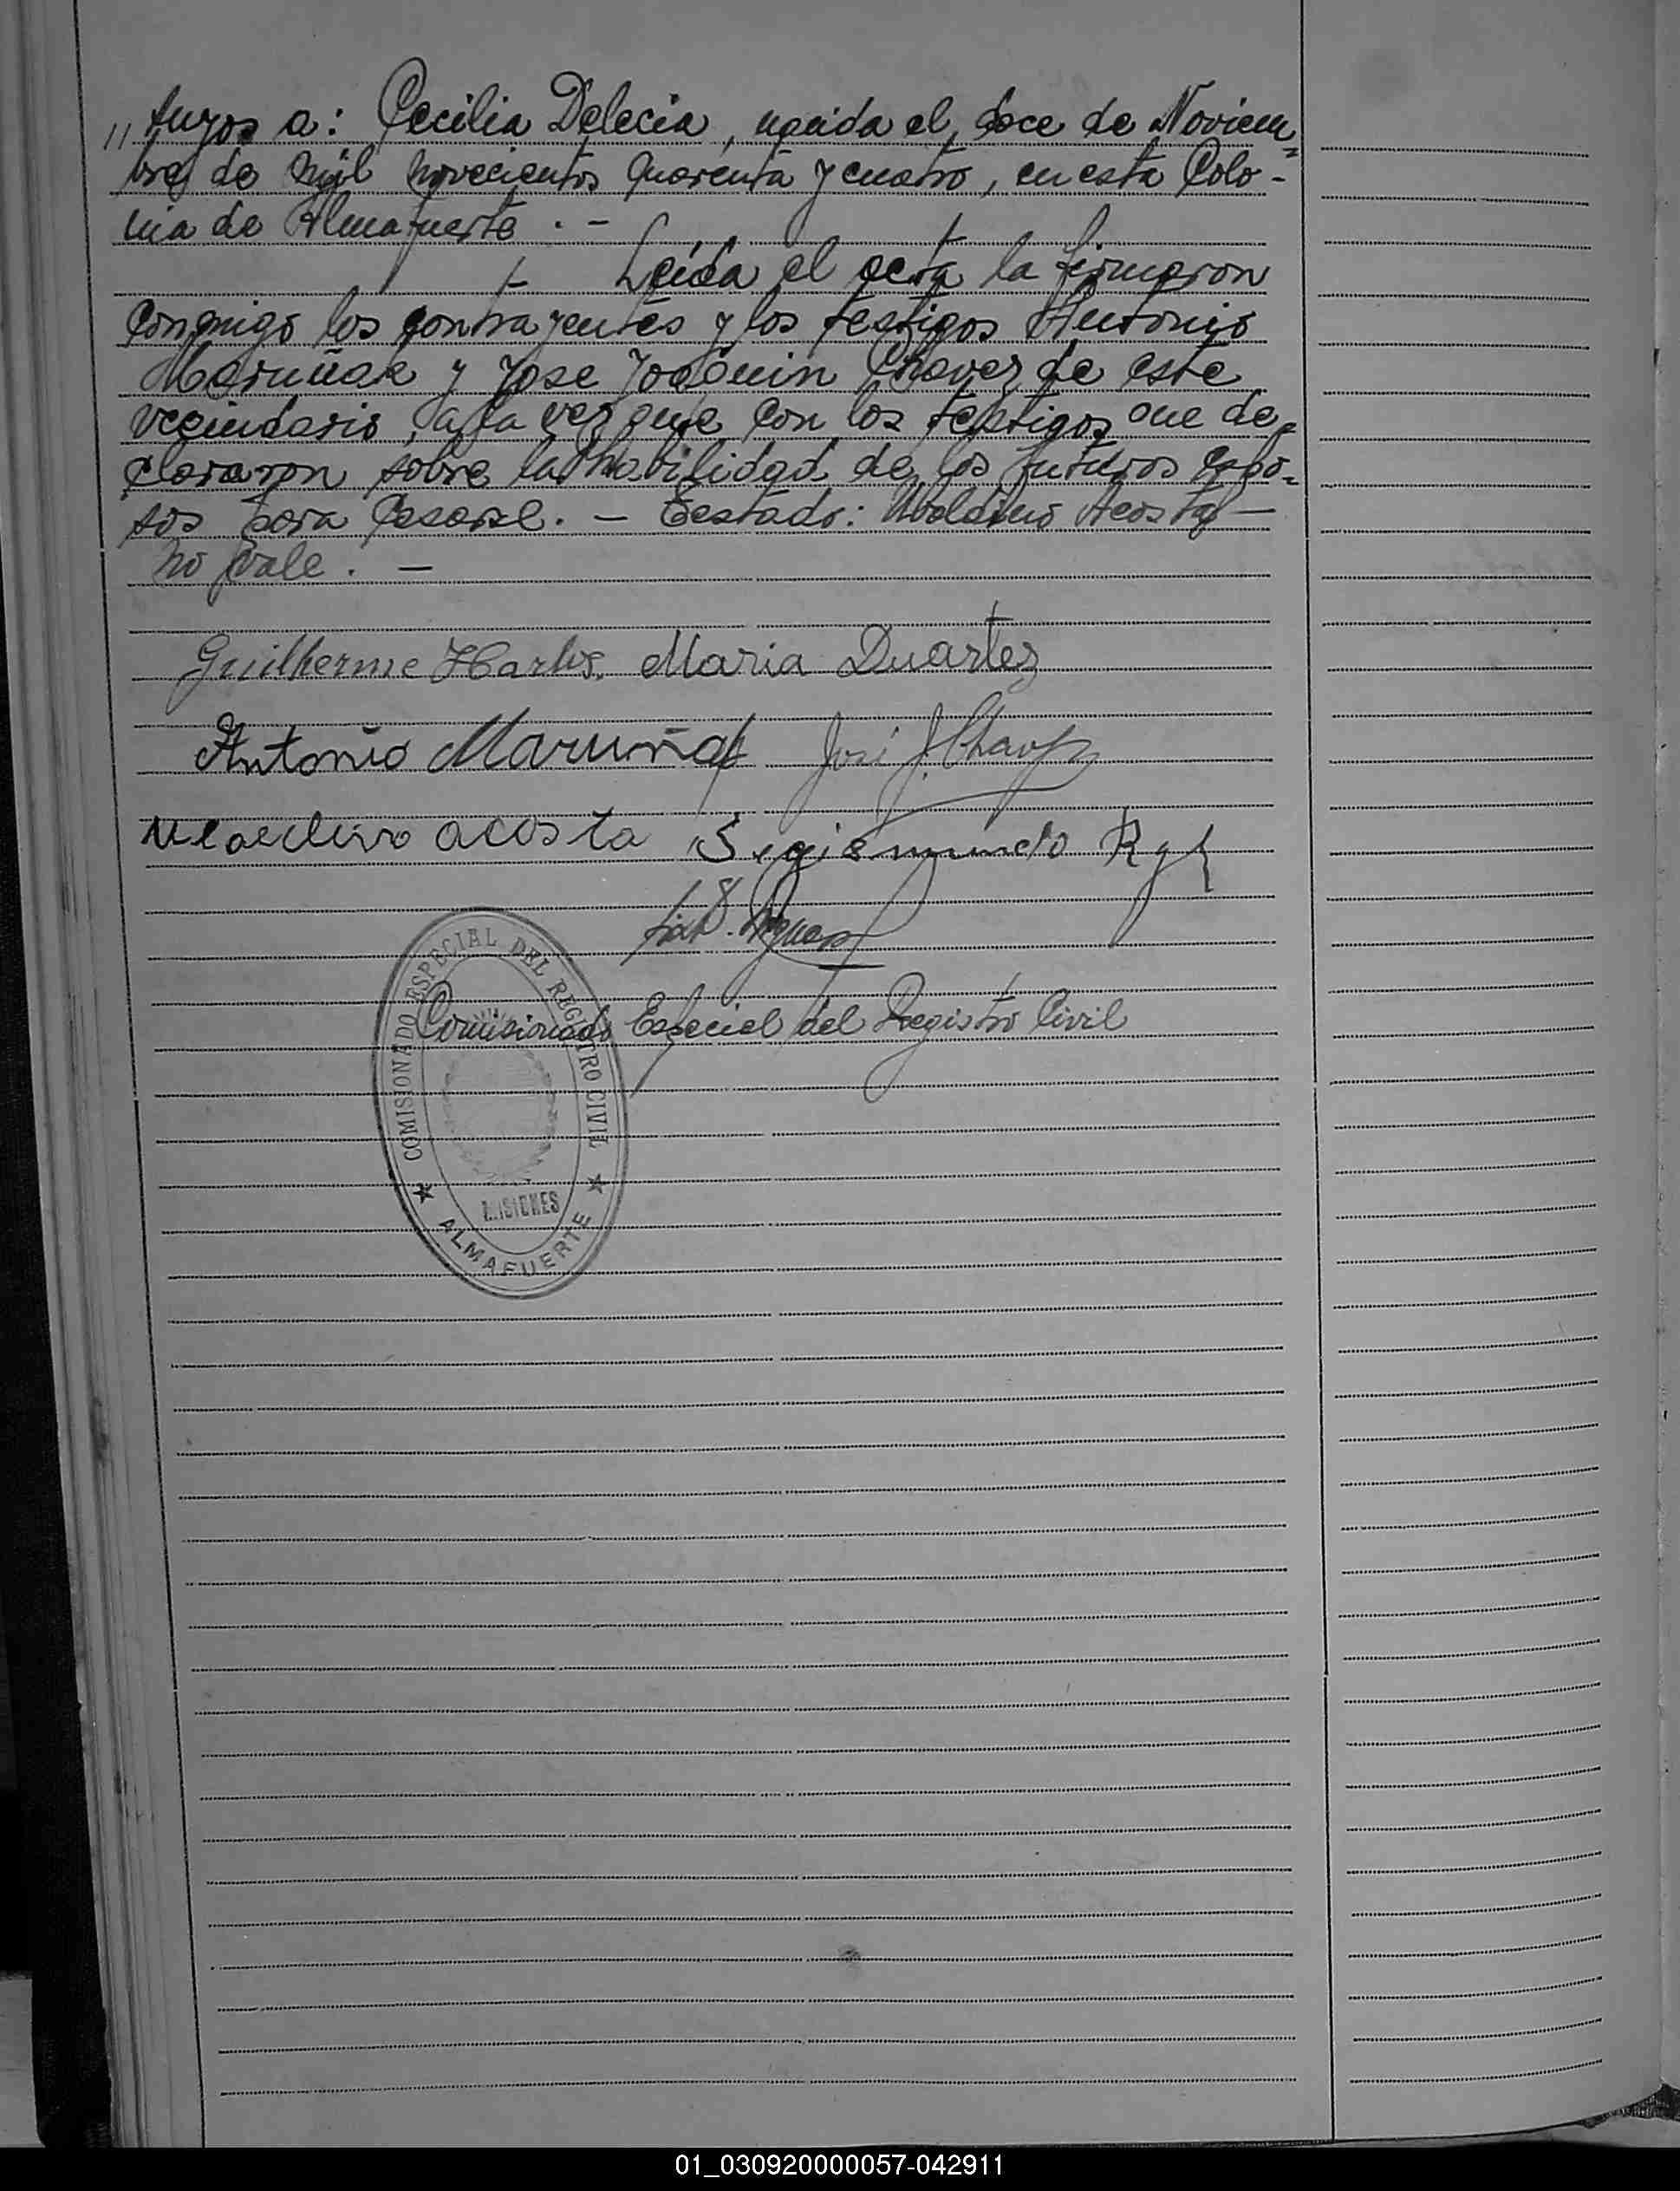 // tuyos a: Cecilia Delecia, nacida el, doce de Noviem-
bre de mil novecientos quarenta y cuatro, en esta Colo-
nia de Almafuerte . -
Leida el acta la firmaron
conmigo los contrayentes y los testigos Antonio
Maruñak y Jose Joaquin Chavez de este
vecindario, a la vez que con los testigos que de-
clararon sobre la habilidad de los futuros espo-
sos para Casarse. - Testado: Ubaldino Acosta -
no vale . -
Guilherme Harhs. Maria Duartez
Antonio Maruñak José J. Chavez
acosta Segismundo
Comisionado Especial del Registro Civil
COMISIONADO ESPECIAL DEL REGISTRO CIVIL
MISIONES
★ ALMAFUERTE ★
01_030920000057-042911